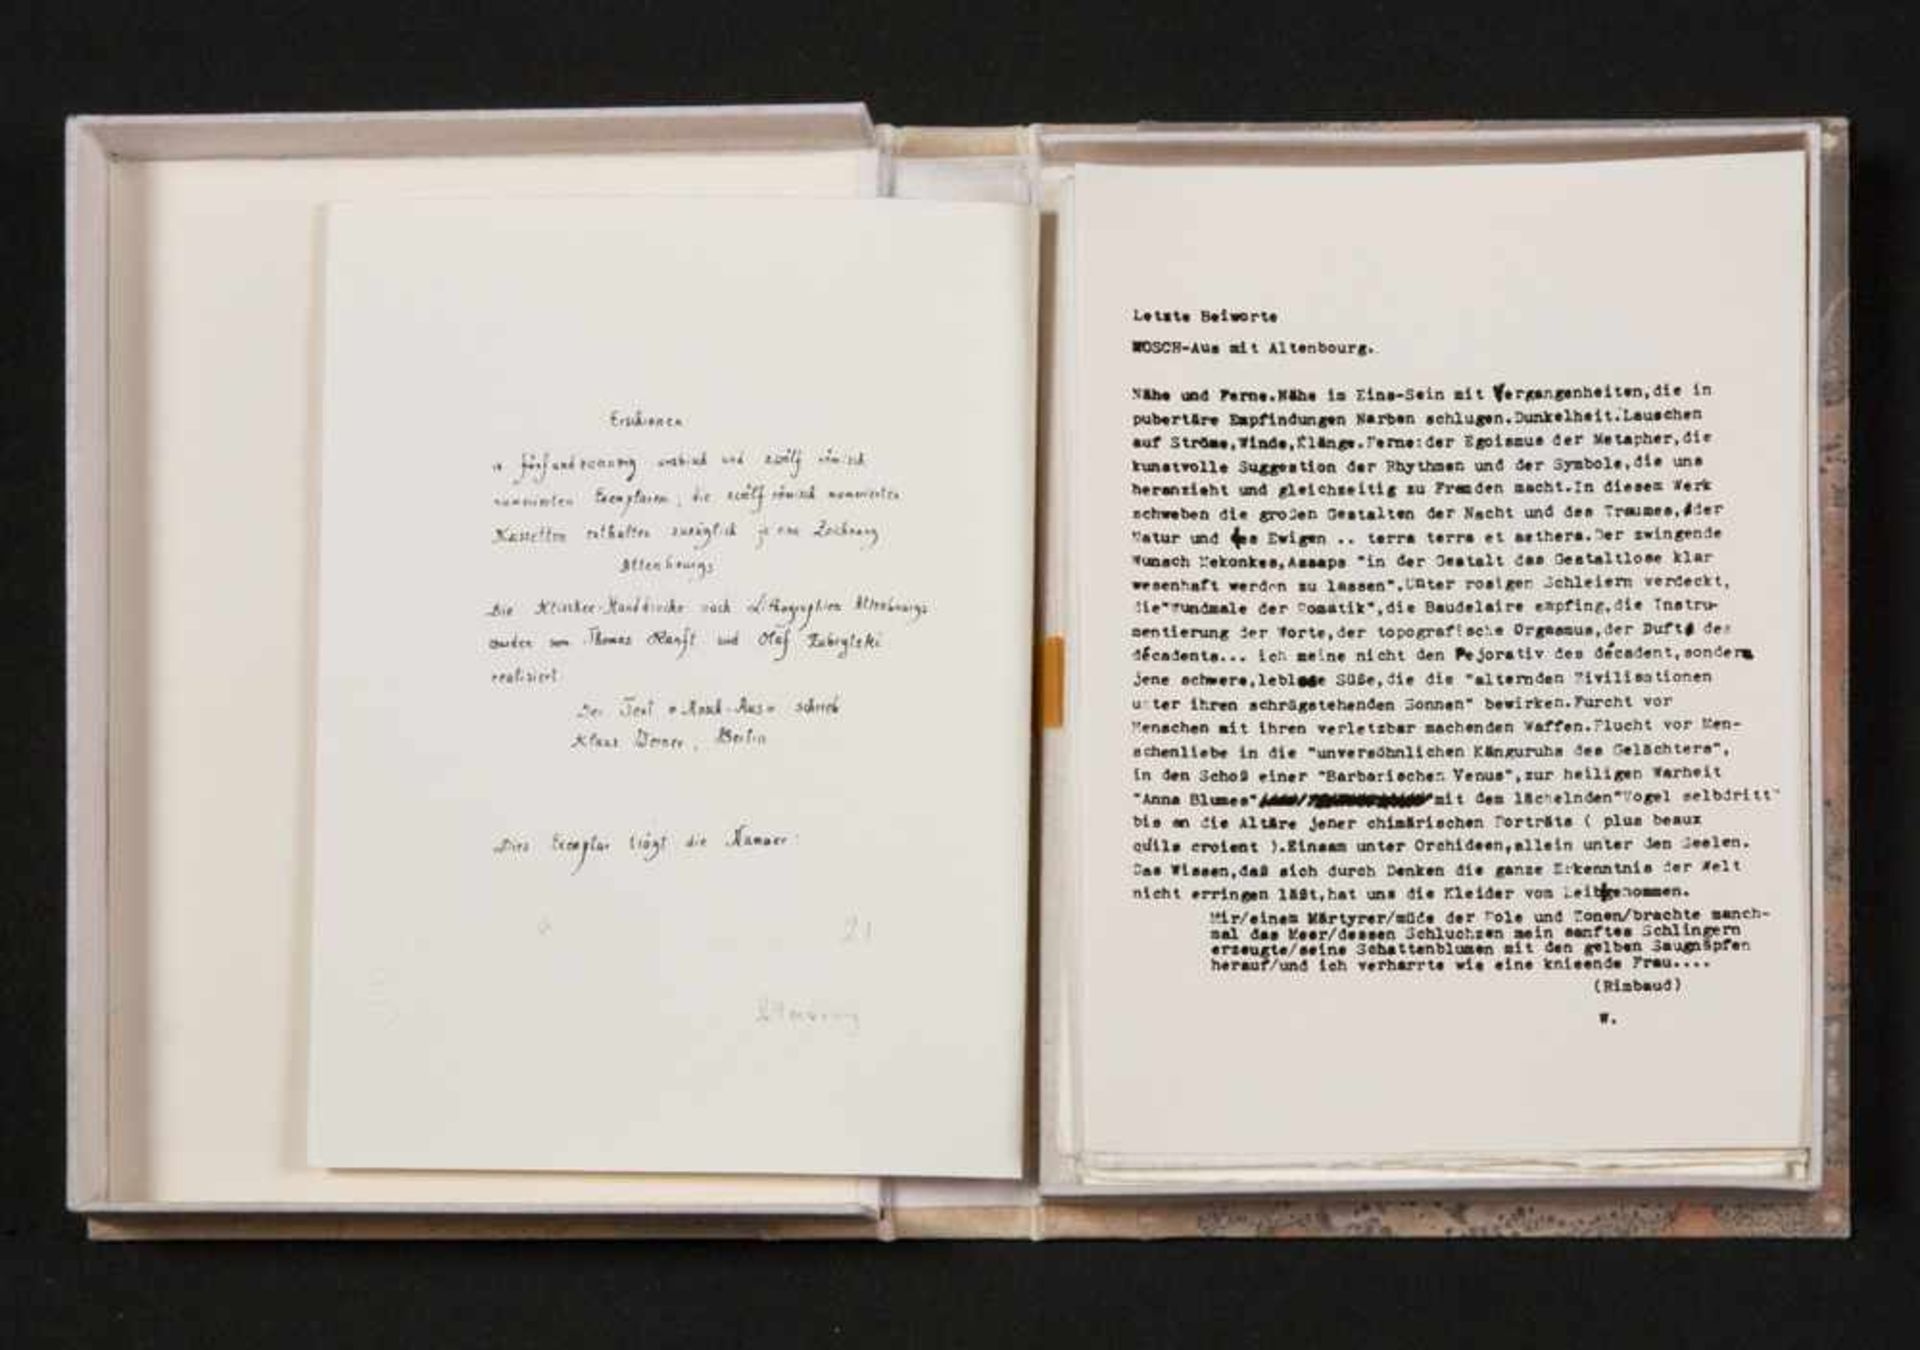 Erschienen
in fünfundzwanzig arabisch und zwölf römisch
nummerierten Exemplaren, die zwölf römisch nummerierten
Kassetten enthalten zuzüglich je eine Zeichnung
Altenbourgs
Die Klischee-Handdrucke nach Lithographien Altenbourgs
wurden von Thomas Ranft und Olaf
realisiert
Der Text "Mosch-Aus" schrieb
Klaus Werner, Berlin
Dies Exemplar trägt die Nummer:
21
Altenbourg
Letzte Beiworte
MOSCH-Aus mit Altenbourg.
Nähe und Ferne.Nähe im Eins-Sein mit Vergangenheiten,die in
pubertäre Empfindungen Narben schlugen.Dunkelheit.Lauschen
auf Ströme,Winde,Klänge.Ferne:der Egoismus der Metapher,die
kunstvolle Suggestion der Rhythmen und der Symbole,die uns
heranzieht und gleichzeitig zu Fremden macht.In diesem Werk
schweben die großen Gestalten der Nacht und des Traumes,der
Natur und des Ewigen .. terra terra et aethera.Der zwingende
Wunsch Mekonkes,Assaps "in der Gestalt das Gestaltlose klar
wesenhaft werden zu lassen".Unter rosigen Schleiern verdeckt,
die"Wundmale der Romatik",die Baudelaire empfing,die Instru-
mentierung der Worte,der topografische Orgasmus,der Duft des
décadents... ich meine nicht den Pejorativ des décadent,sondern
jene schwere,leblose Süße,die die "alternden Zivilisationen
unter ihren schrägstehenden Sonnen" bewirken.Furcht vor
Menschen mit ihren verletzbar machenden Waffen.Flucht vor Men-
schenliebe in die "unversöhnlichen Känguruhs des Gelächters",
in den Schoß einer "Barbarischen Venus",zur heiligen Warheit
"Anna Blumes" mit dem lächelnden"Vogel selbdritt"
bis an die Altäre jener chimärischen Porträts ( plus beaux
quils croient ).Einsam unter Orchideen,allein unter den Seelen.
Das Wissen,daß sich durch Denken die ganze Erkenntnis der Welt
nicht erringen läßt,hat uns die Kleider vom Leib genommen.
Mir/einem Märtyrer/müde der Pole und Zonen/brachte manch-
mal das Meer/dessen Schluchzen mein sanftes Schlingern
erzeugte/seine Schattenblumen mit den gelben Saugnäpfen
herauf/und ich verharrte wie eine knieende Frau....
(Rimbaud)
W.